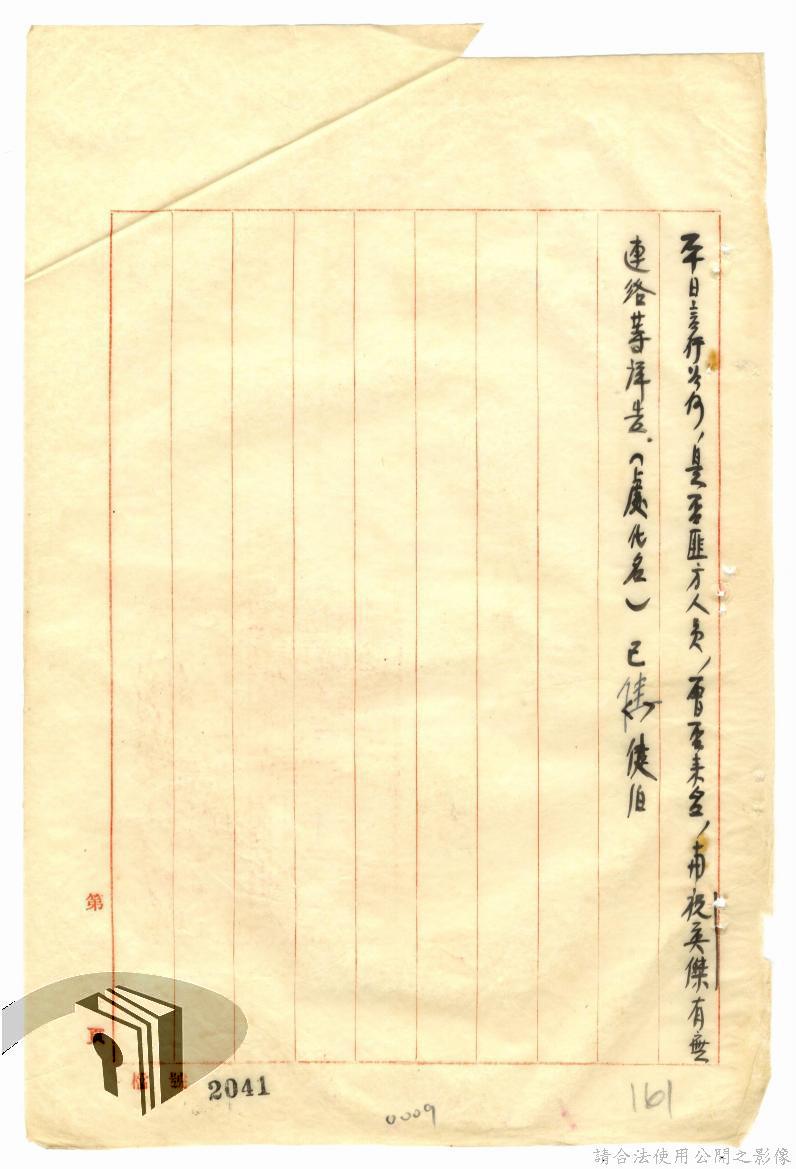 平日言行如何,是否匪方人員,曾否来台,與祝英傑有無
連絡等詳告。(處化名)已 健伯
第
頁
檔 號
2041
0009
161
請合法使用公開之影像